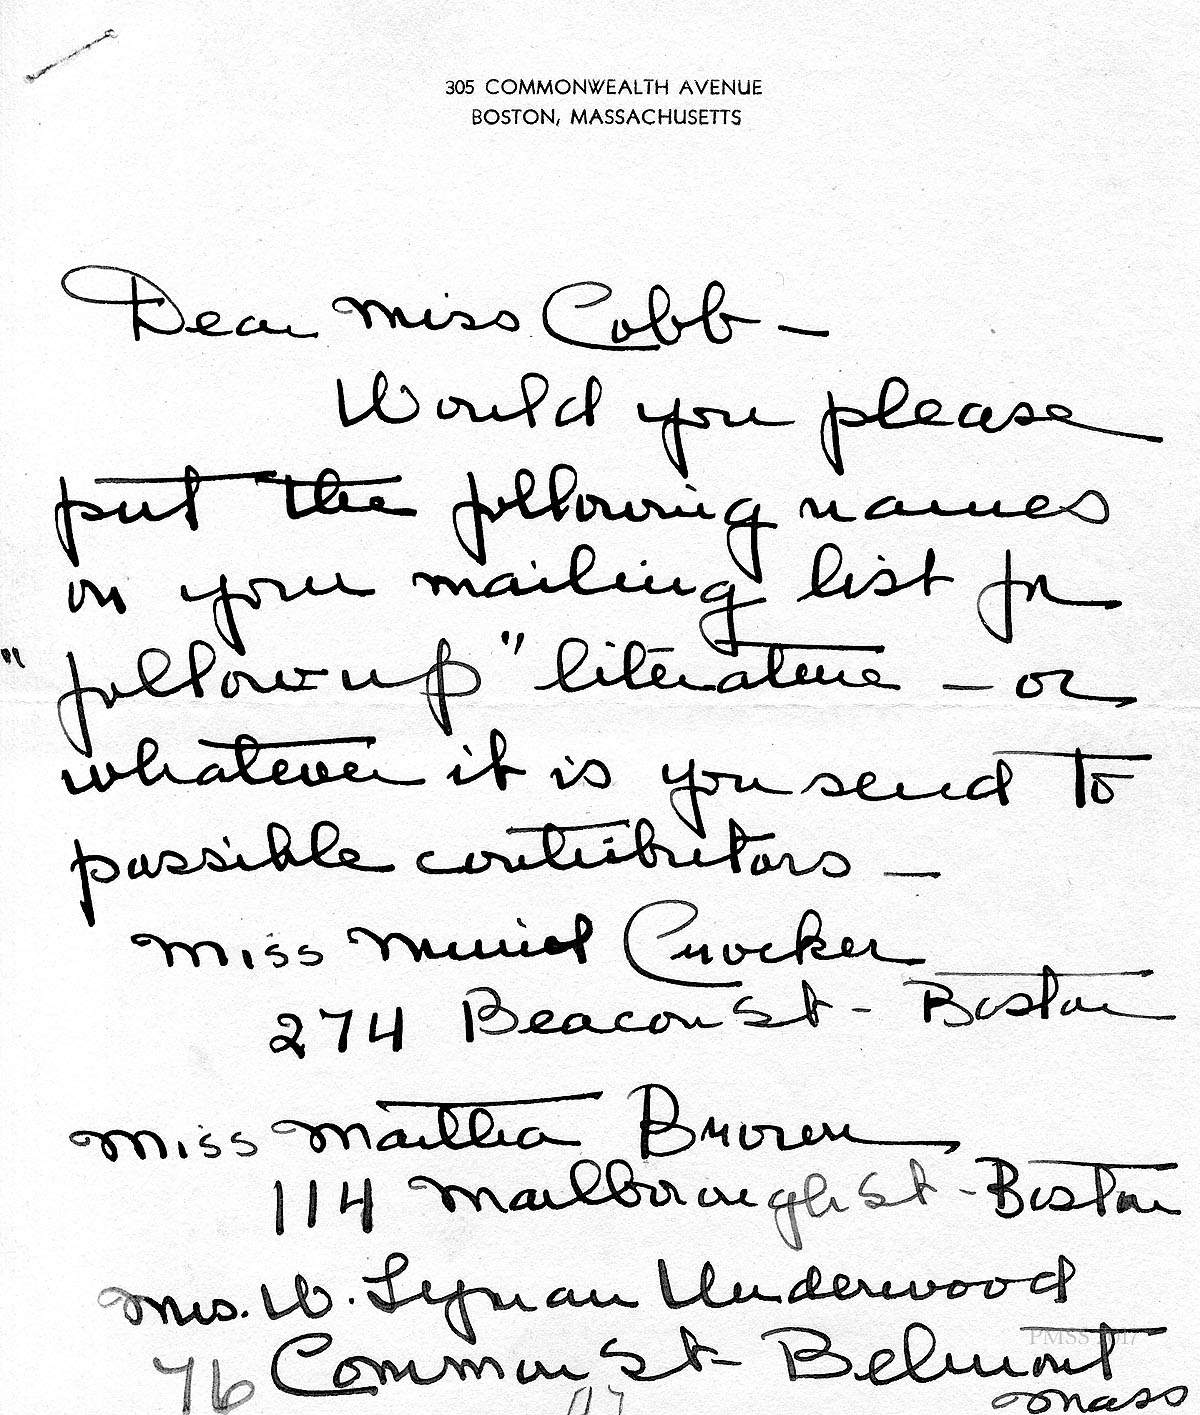 305 COMMONWEALTH AVENUE
BOSTON, MASSACHUSETTS
Dear Miss Cobb —
Would you please
put the following names
on your mailing list for
"follow-up" literature — or
whatever it is you send to
possible contributors —
Miss Muriel Crocker
274 Beacon St - Boston
Miss Martha Brown
114 Marlborough St - Boston
Mrs. W. Lyman Underwood
PMSS 2017
76 Common St - Belmont
Mass